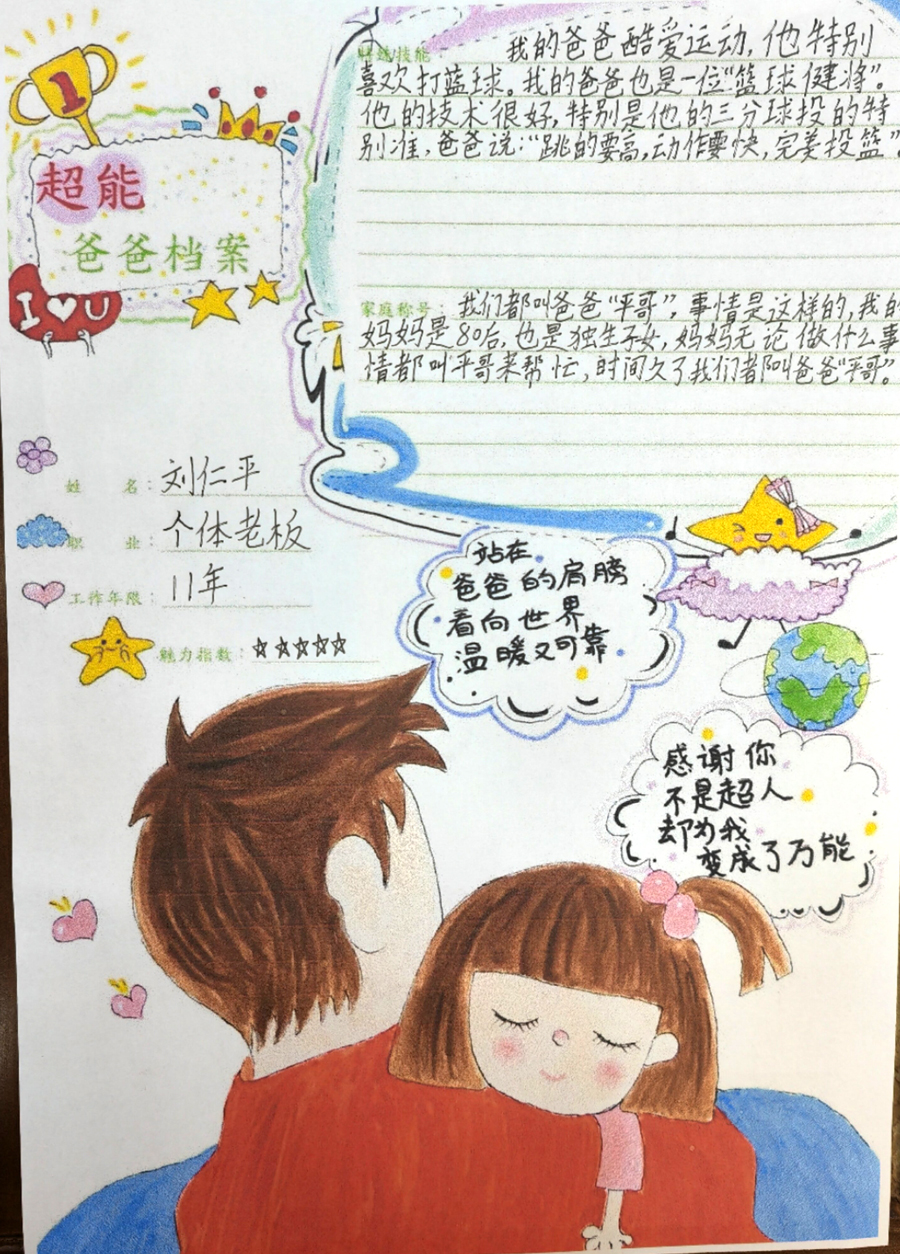 1
超能
爸爸档案
I U
特殊技能：我的爸爸酷爱运动，他特别
喜欢打蓝球。我的爸爸也是一位“篮球健将”。
他的技术很好，特别是他的三分球投的特
别准，爸爸说：“跳的要高，动作要快，完美投篮”。
家庭称号：我们都叫爸爸“平哥”，事情是这样的，我的
妈妈是80后，也是独生子女，妈妈无论做什么事
情都叫平哥来帮忙，时间久了我们都叫爸爸“平哥”。
姓名：刘仁平
职业：个体老板
工作年限：11年
魅力指数：☆☆☆☆☆
站在
爸爸的肩膀
看向世界
温暖又可靠
感谢你
不是超人
却为我
变成了万能